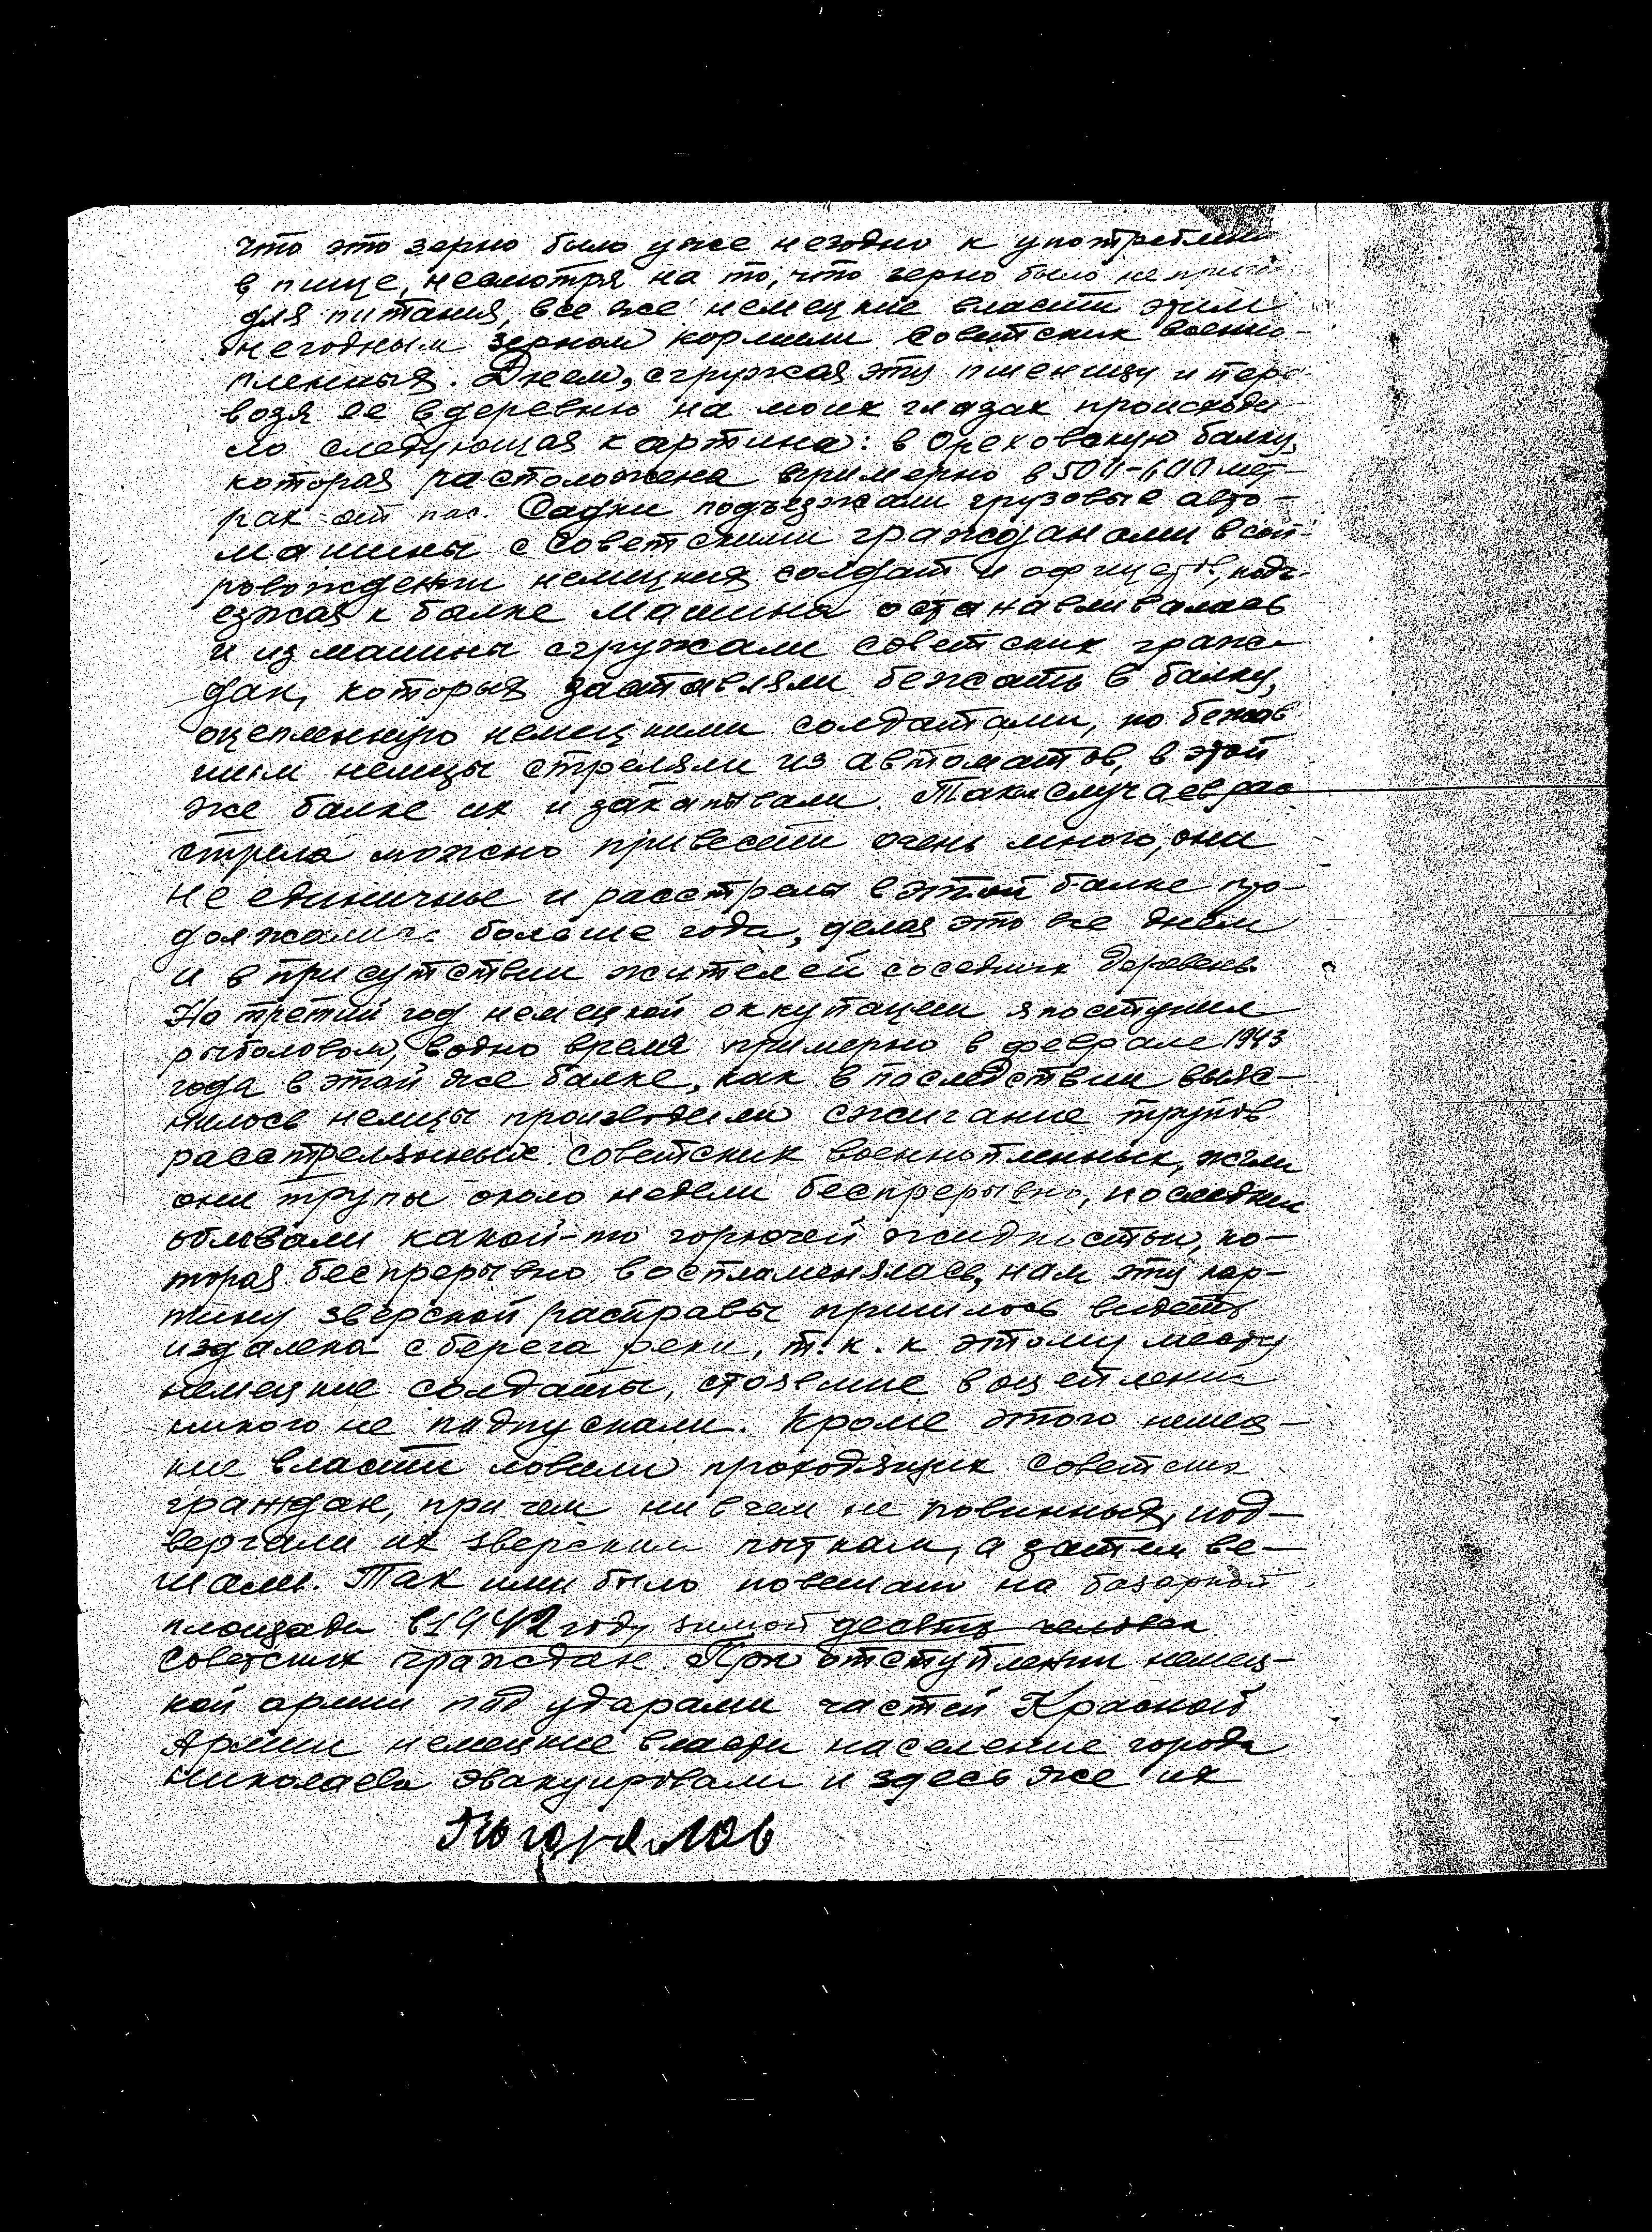 что это зерно было уже негодно к употреблени
в пище, несмотря на то, что зерно было не
для питания, все же немецкие власти этим
негодным зерном кормили Советских военно-
пленных. Днем, сгружая эту пшеницу и пере
возя ее в деревню на моих глазах происходи
ло следующая картина: в Ореховскую балку,
которая расположена примерно в 500-600 мет-
рах от пос. Садки подъезжали грузовые авто-
машины с Советскими гражданами в соп-
ровождении немецких солдат и офицеров, подъ-
езжая к балке машина останавливалась
и из машины сгружали советских граж-
дан, которых заставляли бежать в балку,
оцепленную немецкими солдатами, по бежав
шим немцы стреляли из автоматов, в этой
же балке их и закапывали. Таких случаев рас
стрела можно привести очень много, они
не единичные и расстрелы в этой балке про-
должались больше года, делая это все днем
и в присутствии жителей соседних деревень.
На третий год немецкой оккупации я поступил
рыболовом, в одно время примерно в феврале 1943
года в этой же балке, как в последствии выяс-
нилось немцы производили сжигание трупов
расстрелянных советских военнопленных, жгли
они трупы около недели беспрерывно, последних
обливали какой-то горючей жидкостью, ко-
торая беспрерывно воспламенялась, нам эту кар-
тину зверской расправы пришлось видеть
издалека с берега реки, т.к. к этому месту
немецкие солдаты, стоявшие в оцеплении
никого не подпускали. Кроме этого немец-
кие власти ловили проходящих советских
граждан, при чем ни в чем не повинных, под-
вергали их зверским пыткам, а затем ве-
шали. Так ими было повешано на базарной
площади в 1942 году зимой десять человек
Советских граждан. При отступлении немец-
кой армии под ударами частей Красной
Армии немецкие власти население города
Николаева эвакуировали и здесь же их